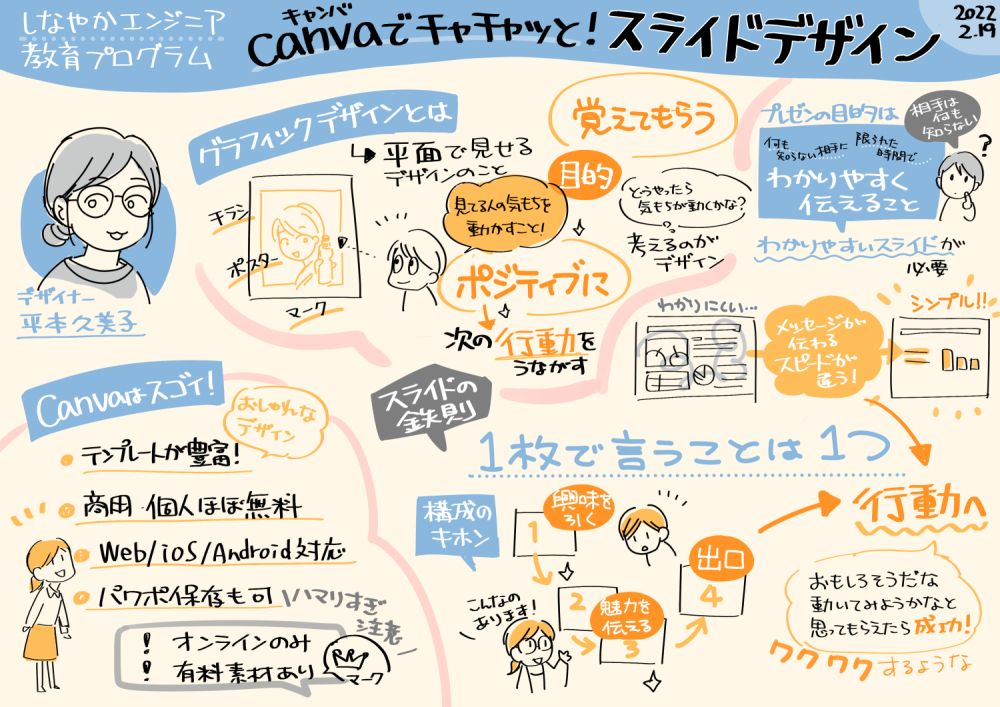 しなやかエンジニア
教育プログラム
キャンバ
Canvaでチャチャッと!スライドデザイン
2022
2.19
デザイナー
平本久美子
グラフィックデザインとは
平面で見せる
デザインのこと
チラシ
ポスター
マーク
覚えてもらう
目的
見てる人の気もちを
動かすこと!
どうやったら
気もちが動くかな?
考えるのが
デザイン
ポジティブに
次の行動を
うながす
プレゼンの目的は
相手は
何も
知らない
?
何も
知らない相手に
限られた
時間で
わかりやすく
伝えること
わかりやすいスライドが
必要
わかりにくい…
メッセージが
伝わる
スピードが
違う!
シンプル!!
Canvaはスゴイ!
おしゃれな
デザイン
テンプレートが豊富!
商用・個人ほぼ無料
Web/iOS/Android対応
パワポ保存も可
ハマりすぎ
注意
! オンラインのみ
! 有料素材あり
マーク
スライドの
鉄則
1枚で言うことは1つ
構成の
キホン
1
興味を
引く
2
魅力を
伝える
3
出口
4
こんなの
あります!
行動へ
おもしろそうだな
動いてみようかなと
思ってもらえたら成功!
ワクワクするような